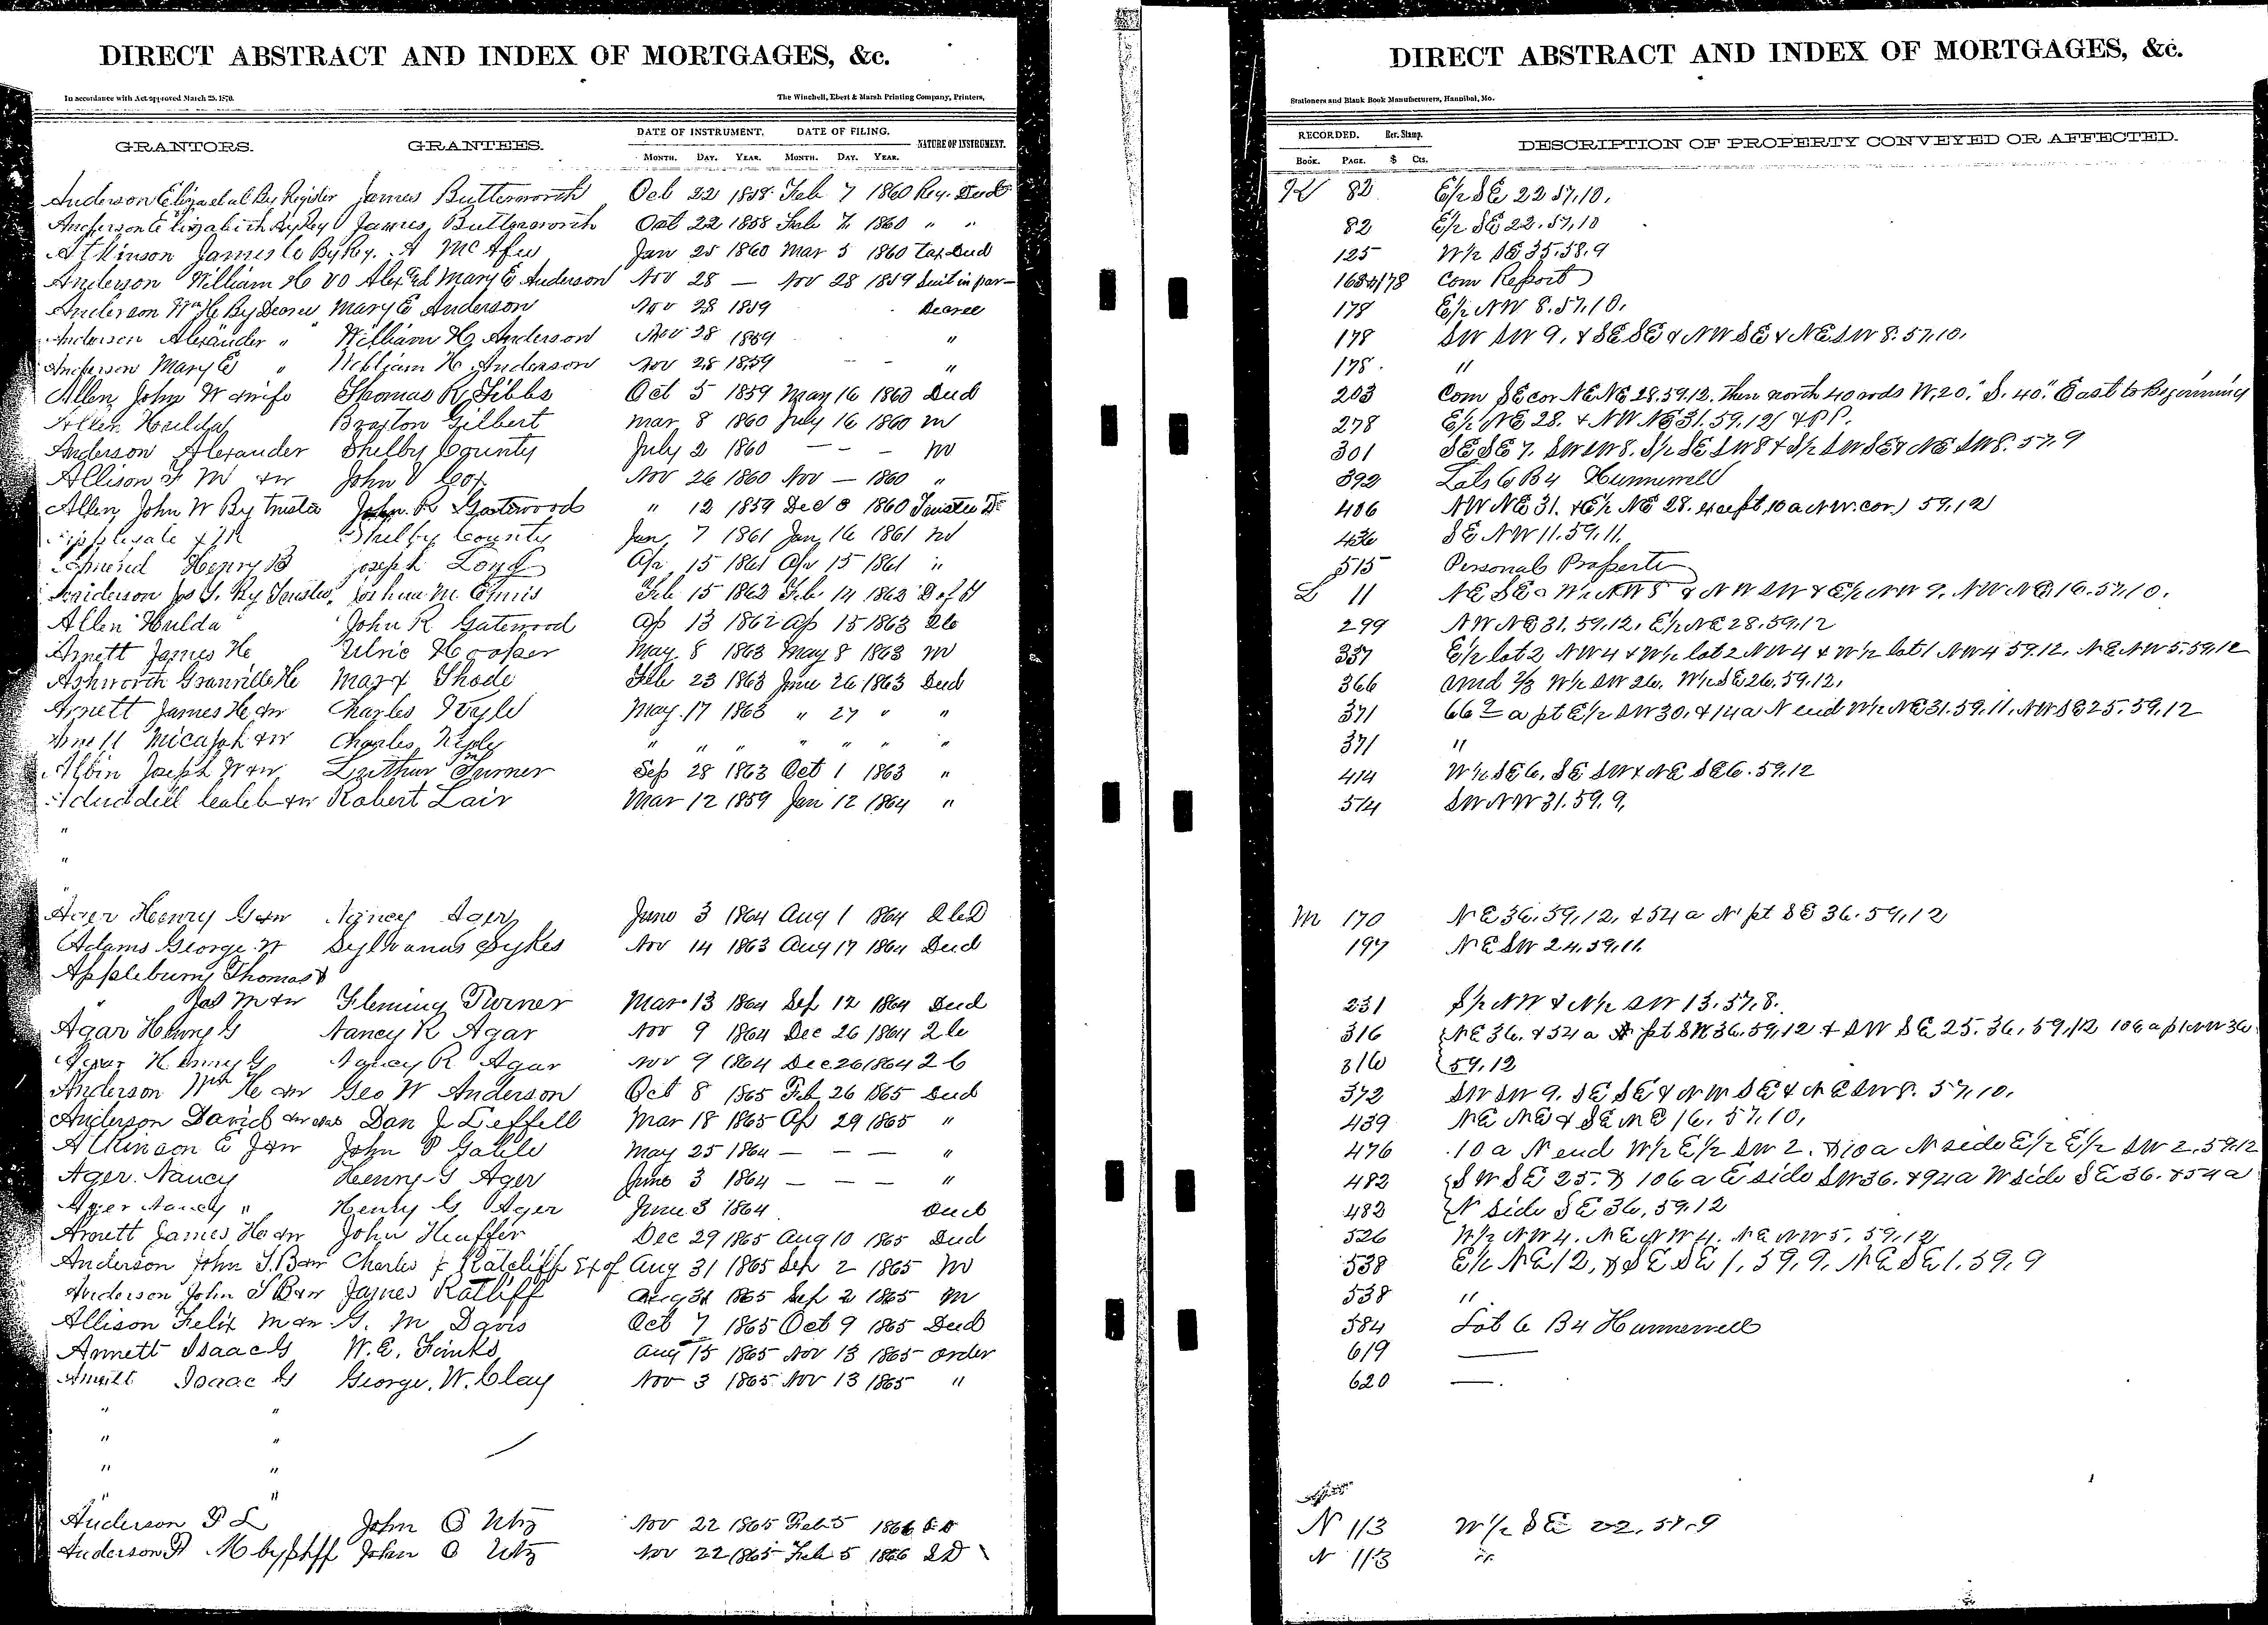 DIRECT ABSTRACT AND INDEX OF MORTGAGES, &c.
In accordance with Act approved March 25, 1870.
The Winchell, Ebert & Marsh Printing Company, Printers,
GRANTORS. GRANTEES. DATE OF INSTRUMENT. DATE OF FILING. NATURE OF INSTRUMENT.
MONTH. DAY. YEAR. MONTH. DAY. YEAR.
Anderson Elizabeth By Register James Butterworth Oct 22 1858 Feb 7 1860 Reg. Deed
Anderson Elizabeth By Reg James Butterworth Oct 22 1858 Feb 7 1860 " "
Atkinson James C By Reg. A McAfee Jan 25 1860 Mar 5 1860 Tax Deed
Anderson William H vs Alex & Mary E Anderson Nov 28 — Nov 28 1859 Suit in par—
Anderson Wm H By Decree Mary E Anderson Nov 28 1859 Decree
Anderson Alexander " William H Anderson Nov 28 1859 "
Anderson Mary E " William H Anderson Nov 28 1859 - - "
Allen John W & wife Thomas R Gibbs Oct 5 1859 May 16 1860 Deed
Allen Hulda Braxton Gilbert Mar 8 1860 July 16 1860 M
Anderson Alexander Shelby County July 2 1860 — - - M
Allison F M & w John V Cox Nov 26 1860 Nov — 1860 "
Allen John W By Trustee John R Gatewood " 12 1859 Dec 8 1860 Trustee D
Applegate Shelby County Jan 7 1861 Jan 16 1861 M
Henry B Joseph Long Ap 15 1861 Ap 15 1861 "
Anderson Jos S. By Trustee Joshua M. Ennis Feb 15 1862 Feb 14 1862 D of T
Allen Hulda John R Gatewood Ap 13 1862 Ap 15 1863
Arnett James H Ulric Hooper May 8 1863 May 8 1863 M
Ashworth Granville H Mary Feb 23 1863 June 26 1863 Deed
Arnett James H & w Charles May 17 1863 " 27 " "
Arnett Micajah & w Charles " " " " " " "
Albin Joseph W & w Turner Sep 28 1863 Oct 1 1863 "
Aduddell Caleb & w Robert Lair Mar 12 1859 Jan 12 1864 "
"
"
"
Ager Henry G & w Nancy Ager June 3 1864 Aug 1 1864
Adams George W Sylvanus Sykes Nov 14 1863 Aug 17 1864 Deed
Appleburry Thomas &
" Jas M & w Fleming Turner Mar 13 1864 Sep 12 1864 Deed
Agar Henry G Nancy R Agar Nov 9 1864 Dec 26 1864 2 C
Agar Henry G Nancy R Agar Nov 9 1864 Dec 26 1864 2 C
Anderson Wm H & w Geo W Anderson Oct 8 1865 Feb 26 1865 Deed
Anderson David Dan J Leffell Mar 18 1865 Ap 29 1865 "
Atkinson E J & w John P Gable May 25 1864 — — — "
Ager Nancy Henry G Ager June 3 1864 — — — "
Ager Nancy " Henry G Ager June 3 1864 Deed
Arnett James H & w John Heaffer Dec 29 1865 Aug 10 1865 Deed
Anderson John S. B & w Charles J Ratcliff Ex of Aug 31 1865 Sep 2 1865 M
Anderson John S B & w James Ratliff Aug 31 1865 Sep 2 1865 M
Allison Felix M & w G. M Davis Oct 7 1865 Oct 9 1865 Deed
Arnett Isaac G W. E. Finks Aug 15 1865 Nov 13 1865 Order
Arnett Isaac G George W. Clay Nov 3 1865 Nov 13 1865 "
" "
" "
" "
" "
Anderson P L John O Utz Nov 22 1865 Feb 5 1866
Anderson John O Utz Nov 22 1865 Feb 5 1866 S D
DIRECT ABSTRACT AND INDEX OF MORTGAGES, &c.
Stationers and Blank Book Manufacturers, Hannibal, Mo.
RECORDED. Rev. Stamp. DESCRIPTION OF PROPERTY CONVEYED OR AFFECTED.
BOOK. PAGE. $ Cts.
K 82 E½ SE 22.57.10.
82 E½ SE 22.57.10
125 W½ SE 35.58.9
168 & 178 Com Report
178 E½ NW 8.57.10.
178 SW SW 9. & SE SE & NW SE & NE SW 8.57.10.
178. "
203 Com SE cor NE NE 28.59.12. then north 40 rods W. 20." S. 40." East to Beginning
278 E½ NE 28. & NW NE 31.59.12 & PP.
301 SE SE 7. SW SW 8. S½ SE SW 8 & S½ SW SE & NE SW 8.57.9
392 Lots 6 B 4 Hunnewell
406 NW NE 31. & E½ NE 28. except 10 a NW. cor.) 59.12
436 SE NW 11.59.11.
515 Personal Property
L 11 NE SE W½ NW 8 & NW SW & E½ NW 9. NW NE 16.57.10.
299 NW NE 31.59.12. E½ NE 28.59.12
337 E½ lot 2 NW 4 & W½ lot 2 NW 4 & W½ lot 1 NW 4 59.12. NE NW 5.59.12
366 und ⅔ W½ SW 26. W½ SE 26.59.12.
371 66 a pt E½ SW 30. & 14 a N end W½ NE 31.59.11. NW SE 25.59.12
371 "
414 W½ SE 6. SE SW & NE SE 6.59.12
514 SW NW 31.59.9.
M 170 NE 36.59.12. & 54 a N pt SE 36.59.12
197 NE SW 24.59.11.
231 S½ NW & N½ SW 13.57.8.
316 NE 36. & 54 a N pt SW 36.59.12 & SW SE 25.36.59.12 106 a pt NW 36
316 59.12
372 SW SW 9. SE SE & NW SE & NE SW 8.57.10.
439 NE NE & SE NE 16.57.10.
476 10 a N end W½ E½ SW 2. & 10 a N side E½ E½ SW 2.59.12
482 SW SE 25. & 106 a E side SW 36. & 94 a W side SE 36. & 54 a
482 N side SE 36.59.12
526 W½ NW 4. NE NW 4. NE NW 5.59.12
538 E½ NE 12, & SE SE 1.59.9. NE SE 1.59.9
538 "
584 Lot 6 B 4 Hunnewell
619 —
620 —.
N 113 W½ SE 22.57.9
N 113 "